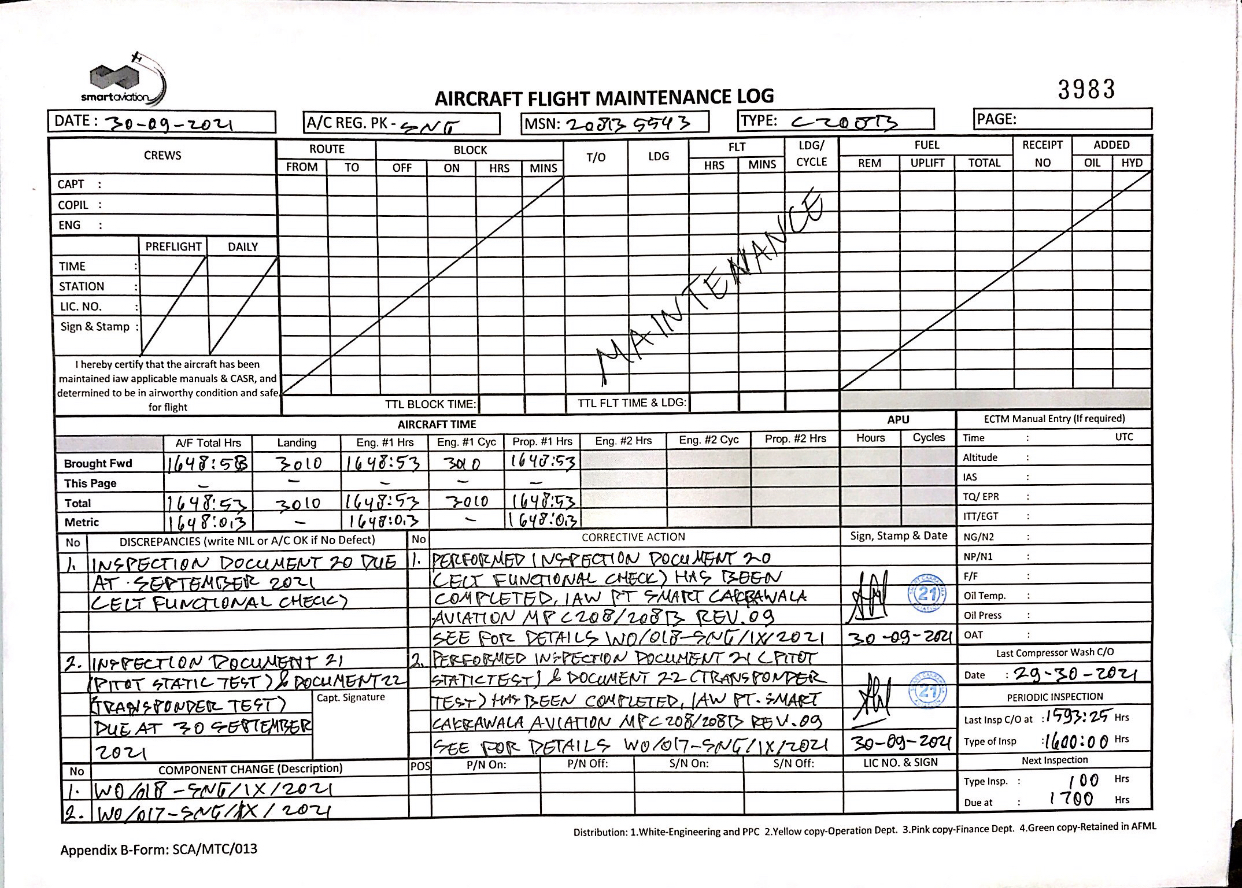 smartaviation
AIRCRAFT FLIGHT MAINTENANCE LOG
3983
DATE : 30-09-2021 A/C REG. PK - SNG MSN: 208B5543 TYPE: C208B PAGE:
CREWS ROUTE BLOCK T/O LDG FLT LDG/ CYCLE FUEL RECEIPT NO ADDED
FROM TO OFF ON HRS MINS HRS MINS REM UPLIFT TOTAL OIL HYD
CAPT :
COPIL :
ENG :
PREFLIGHT DAILY
TIME :
STATION :
LIC. NO. :
Sign & Stamp :
MAINTENANCE
I hereby certify that the aircraft has been
maintained iaw applicable manuals & CASR, and
determined to be in airworthy condition and safe
for flight
TTL BLOCK TIME: TTL FLT TIME & LDG:
AIRCRAFT TIME APU ECTM Manual Entry (If required)
A/F Total Hrs Landing Eng. #1 Hrs Eng. #1 Cyc Prop. #1 Hrs Eng. #2 Hrs Eng. #2 Cyc Prop. #2 Hrs Hours Cycles Time : UTC
Brought Fwd 1648:53 3010 1648:53 3010 1648:53 Altitude :
This Page - - - - - IAS :
Total 1648:53 3010 1648:53 3010 1648:53 TQ/ EPR :
Metric 1648:0.3 - 1648:0.3 - 1648:0.3 ITT/EGT :
No DISCREPANCIES (write NIL or A/C OK if No Defect) No CORRECTIVE ACTION Sign, Stamp & Date NG/N2 :
NP/N1 :
F/F :
Oil Temp. :
Oil Press :
OAT :
1. INSPECTION DOCUMENT 20 DUE
AT SEPTEMBER 2021
(ELT FUNCTIONAL CHECK)
1. PERFORMED INSPECTION DOCUMENT 20
(ELT FUNCTIONAL CHECK) HAS BEEN
COMPLETED, IAW PT SMART CAKRAWALA
AVIATION MP C208/208B REV.09
SEE FOR DETAILS WO/018-SNG/IX/2021
21
30-09-2021
2. INSPECTION DOCUMENT 21
(PITOT STATIC TEST) & DOCUMENT 22
(TRANSPONDER TEST)
DUE AT 30 SEPTEMBER
2021
Capt. Signature
2. PERFORMED INSPECTION DOCUMENT 21 (PITOT
STATIC TEST) & DOCUMENT 22 (TRANSPONDER
TEST) HAS BEEN COMPLETED, IAW PT. SMART
CAKRAWALA AVIATION MP C208/208B REV.09
SEE FOR DETAILS WO/017-SNG/IX/2021
21
30-09-2021
Last Compressor Wash C/O
Date : 29-30-2021
PERIODIC INSPECTION
Last Insp C/O at : 1593:25 Hrs
Type of Insp : 1600:00 Hrs
Next Inspection
Type Insp. : 100 Hrs
Due at : 1700 Hrs
No COMPONENT CHANGE (Description) POS P/N On: P/N Off: S/N On: S/N Off: LIC NO. & SIGN
1. WO/018-SNG/IX/2021
2. WO/017-SNG/IX/2021
Distribution: 1.White-Engineering and PPC 2.Yellow copy-Operation Dept. 3.Pink copy-Finance Dept. 4.Green copy-Retained in AFML
Appendix B-Form: SCA/MTC/013